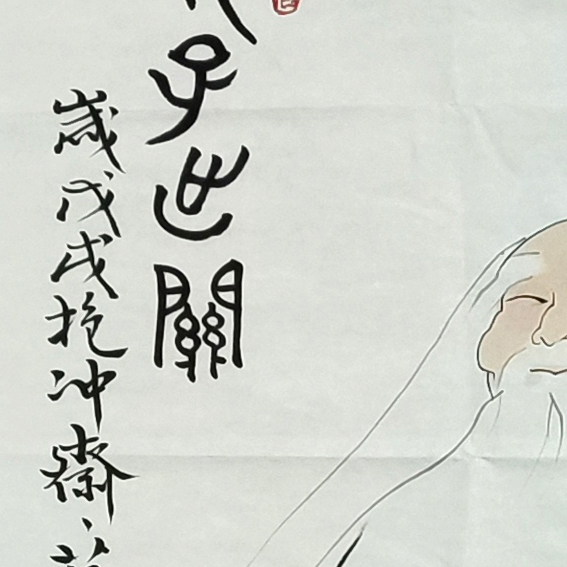 子出關
歲戊戌抱冲齋